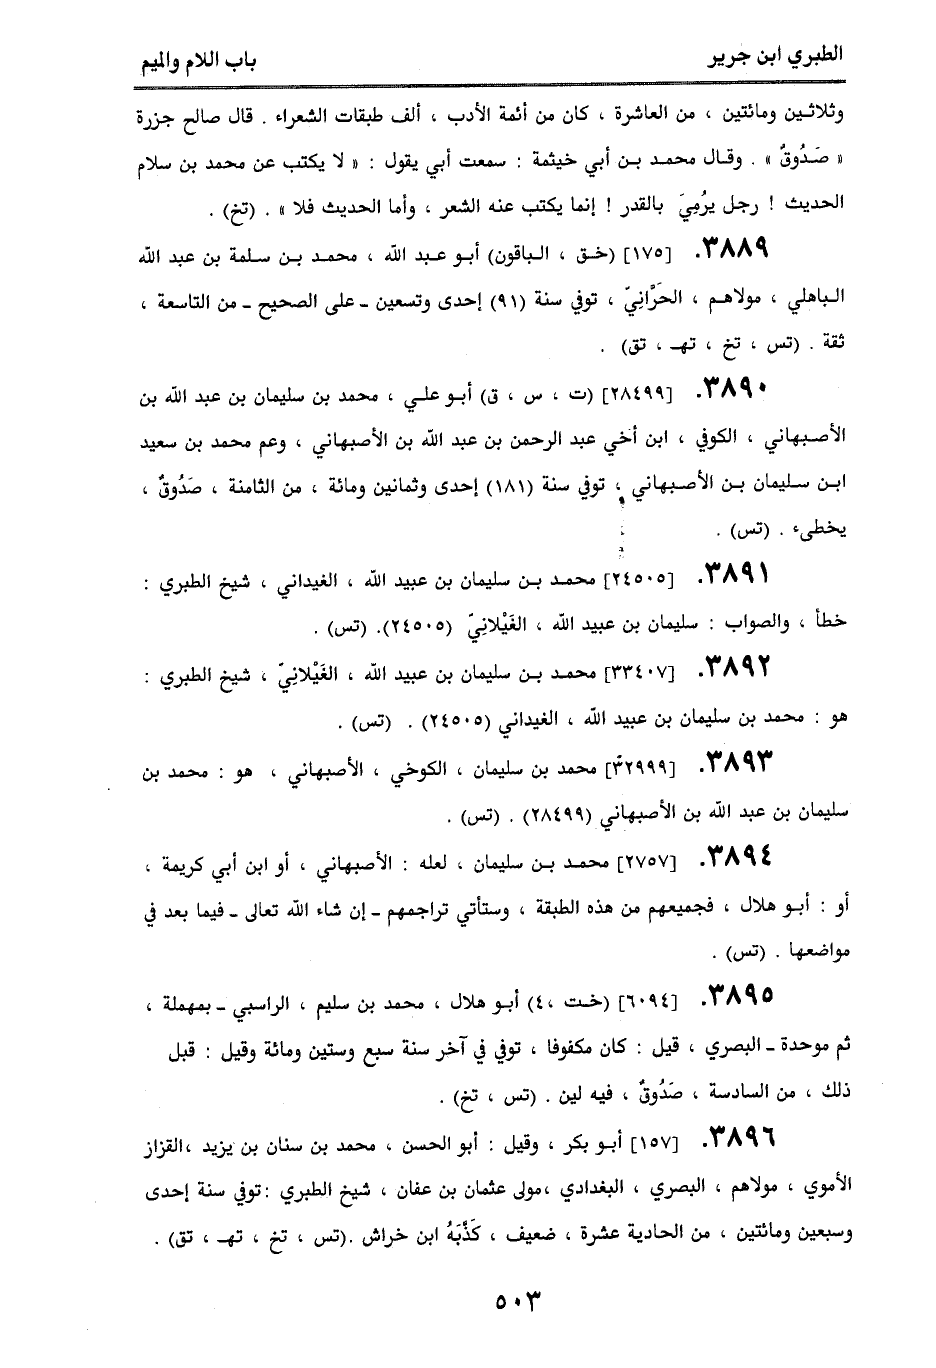 الطبري ابن جرير
باب اللام والميم
وثلاثين ومائتين ، من العاشرة ، كان من أئمة الأدب ، ألف طبقات الشعراء . قال صالح جزرة
« صَدُوقٌ » . وقال محمد بن أبي خيثمة : سمعت أبي يقول : « لا يكتب عن محمد بن سلام
الحديث ! رجل يرُمِيَ بالقدر ! إنما يكتب عنه الشعر ، وأما الحديث فلا » . (تخ) .
٣٨٨٩. [١٧٥] (خق ، الباقون) أبو عبد الله ، محمد بن سلمة بن عبد الله
الباهلي ، مولاهم ، الحَرَّانِيّ ، توفي سنة (٩١) إحدى وتسعين ـ على الصحيح ـ من التاسعة ،
ثقة . (تس ، تخ ، تهـ ، تق) .
٣٨٩٠. [٢٨٤٩٩] (ت ، س ، ق) أبو علي ، محمد بن سليمان بن عبد الله بن
الأصبهاني ، الكوفي ، ابن أخي عبد الرحمن بن عبد الله بن الأصبهاني ، وعم محمد بن سعيد
ابن سليمان بن الأصبهاني ، توفي سنة (١٨١) إحدى وثمانين ومائة ، من الثامنة ، صَدُوقٌ ،
يخطىء . (تس) .
٣٨٩١. [٢٤٥٠٥] محمد بن سليمان بن عبيد الله ، الغيداني ، شيخ الطبري :
خطأ ، والصواب : سليمان بن عبيد الله ، الغَيْلانِيّ (٢٤٥٠٥). (تس) .
٣٨٩٢. [٣٣٤٠٧] محمد بن سليمان بن عبيد الله ، الغَيْلانِيّ ، شيخ الطبري :
هو : محمد بن سليمان بن عبيد الله ، الغيداني (٢٤٥٠٥) . (تس) .
٣٨٩٣. [٣٢٩٩٩] محمد بن سليمان ، الكوخي ، الأصبهاني ، هو : محمد بن
سليمان بن عبد الله بن الأصبهاني (٢٨٤٩٩) . (تس) .
٣٨٩٤. [٢٧٥٧] محمد بن سليمان ، لعله : الأصبهاني ، أو ابن أبي كريمة ،
أو : أبو هلال ، فجميعهم من هذه الطبقة ، وستأتي تراجمهم ـ إن شاء الله تعالى ـ فيما بعد في
مواضعها . (تس) .
٣٨٩٥. [٦٠٩٤] (خت ،٤) أبو هلال ، محمد بن سليم ، الراسبي ـ بمهملة ،
ثم موحدة ـ البصري ، قيل : كان مكفوفا ، توفي في آخر سنة سبع وستين ومائة وقيل : قبل
ذلك ، من السادسة ، صَدُوقٌ ، فيه لين . (تس ، تخ) .
٣٨٩٦. [١٥٧] أبو بكر ، وقيل : أبو الحسن ، محمد بن سنان بن يزيد ،القزاز
الأموي ، مولاهم ، البصري ، البغدادي ،مولى عثمان بن عفان ، شيخ الطبري :توفي سنة إحدى
وسبعين ومائتين ، من الحادية عشرة ، ضعيف ، كَذَّبَهُ ابن خراش .(تس ، تخ ، تهـ ، تق) .
٥٠٣